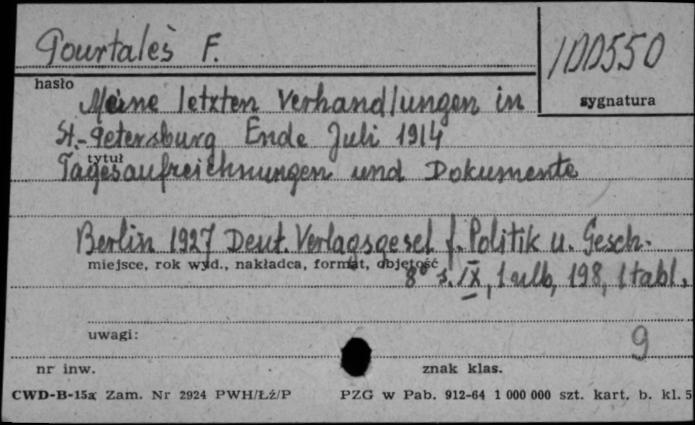 Pourtalès F.
100550
hasło
sygnatura
Meine letzten Verhandlungen in
St.-Petersburg Ende Juli 1914
tytuł
Tagesaufzeichnungen und Dokumente
Berlin 1927 Deut. Verlagsgesel f. Politik u. Gesch.
miejsce, rok wyd., nakładca, format, objętość
8° s. IX, 1 nlb, 198, 1 tabl.
uwagi:
9
nr inw.
znak klas.
CWD-B-15a Zam. Nr 2924 PWH/Łź/P
PZG w Pab. 912-64 1 000 000 szt. kart. b. kl. 5